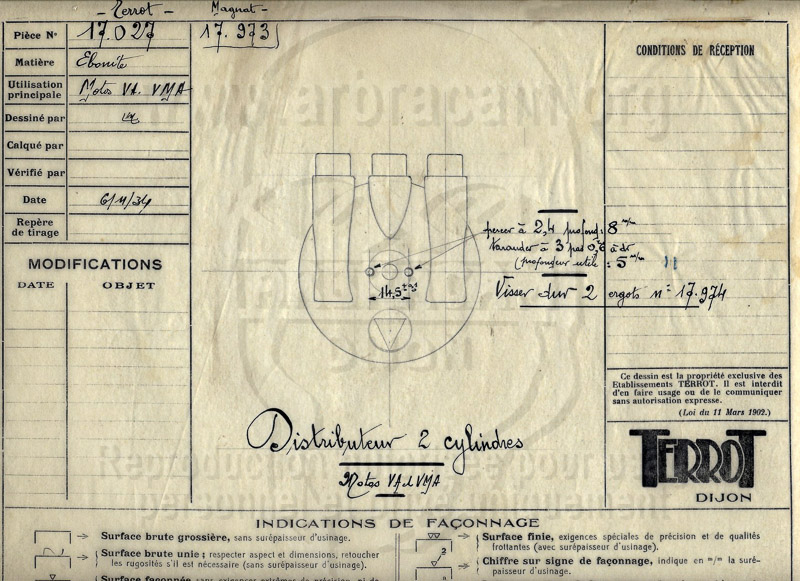 Terrot - Magnat -
Pièce N° 17.027 17.973
Matière Ebonite
Utilisation principale Motos VA. VMA
Dessiné par
Calqué par
Vérifié par
Date 6/11/34
Repère de tirage
MODIFICATIONS
DATE OBJET
CONDITIONS DE RÉCEPTION
percer à 2,4 profond: 8 m/m
tarauder à 3 pas 0,6 à dr
(profondeur utile : 5 m/m
14,5
Visser sur 2 ergots n° 17.974
Ce dessin est la propriété exclusive des
Etablissements TERROT. Il est interdit
d'en faire usage ou de le communiquer
sans autorisation expresse.
(Loi du 11 Mars 1902.)
TERROT
DIJON
Distributeur 2 cylindres
Motos VA et VMA
INDICATIONS DE FAÇONNAGE
Surface brute grossière, sans surépaisseur d'usinage.
Surface brute unie ; respecter aspect et dimensions, retoucher
les rugosités s'il est nécessaire (sans surépaisseur d'usinage).
Surface façonnée sans exigences extrêmes de précision, ni de
Surface finie, exigences spéciales de précision et de qualités
frottantes (avec surépaisseur d'usinage).
2
Chiffre sur signe de façonnage, indique en m/m la surépaisseur d'usinage.